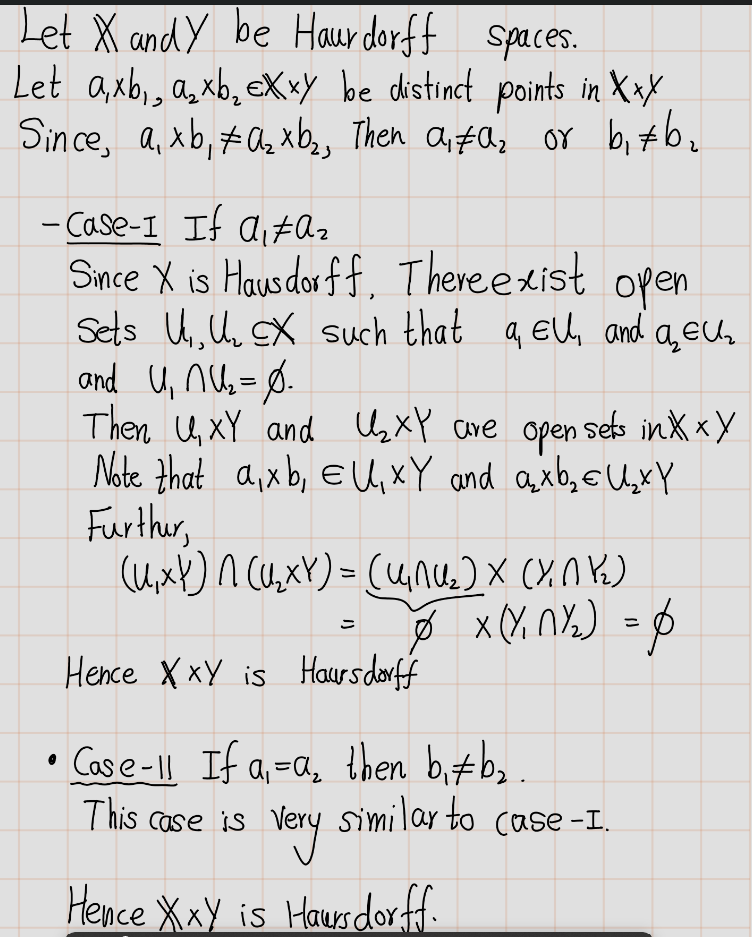 Let X and Y be Haurdorff spaces.
Let a₁×b₁, a₂×b₂ ∈ X×Y be distinct points in X×Y
Since, a₁×b₁ ≠ a₂×b₂, Then a₁≠a₂ or b₁≠b₂
– Case-I If a₁≠a₂
Since X is Hausdorff, There exist open
Sets U₁, U₂ ⊆ X such that a₁ ∈ U₁ and a₂ ∈ U₂
and U₁ ∩ U₂ = ∅.
Then U₁×Y and U₂×Y are open sets in X×Y
Note that a₁×b₁ ∈ U₁×Y and a₂×b₂ ∈ U₂×Y
Furthur,
(U₁×Y) ∩ (U₂×Y) = (U₁∩U₂) × (Y₁∩Y₂)
= ∅ × (Y₁∩Y₂) = ∅
Hence X×Y is Haursdorff
• Case-II If a₁=a₂ then b₁≠b₂.
This case is very similar to case-I.
Hence X×Y is Haursdorff.